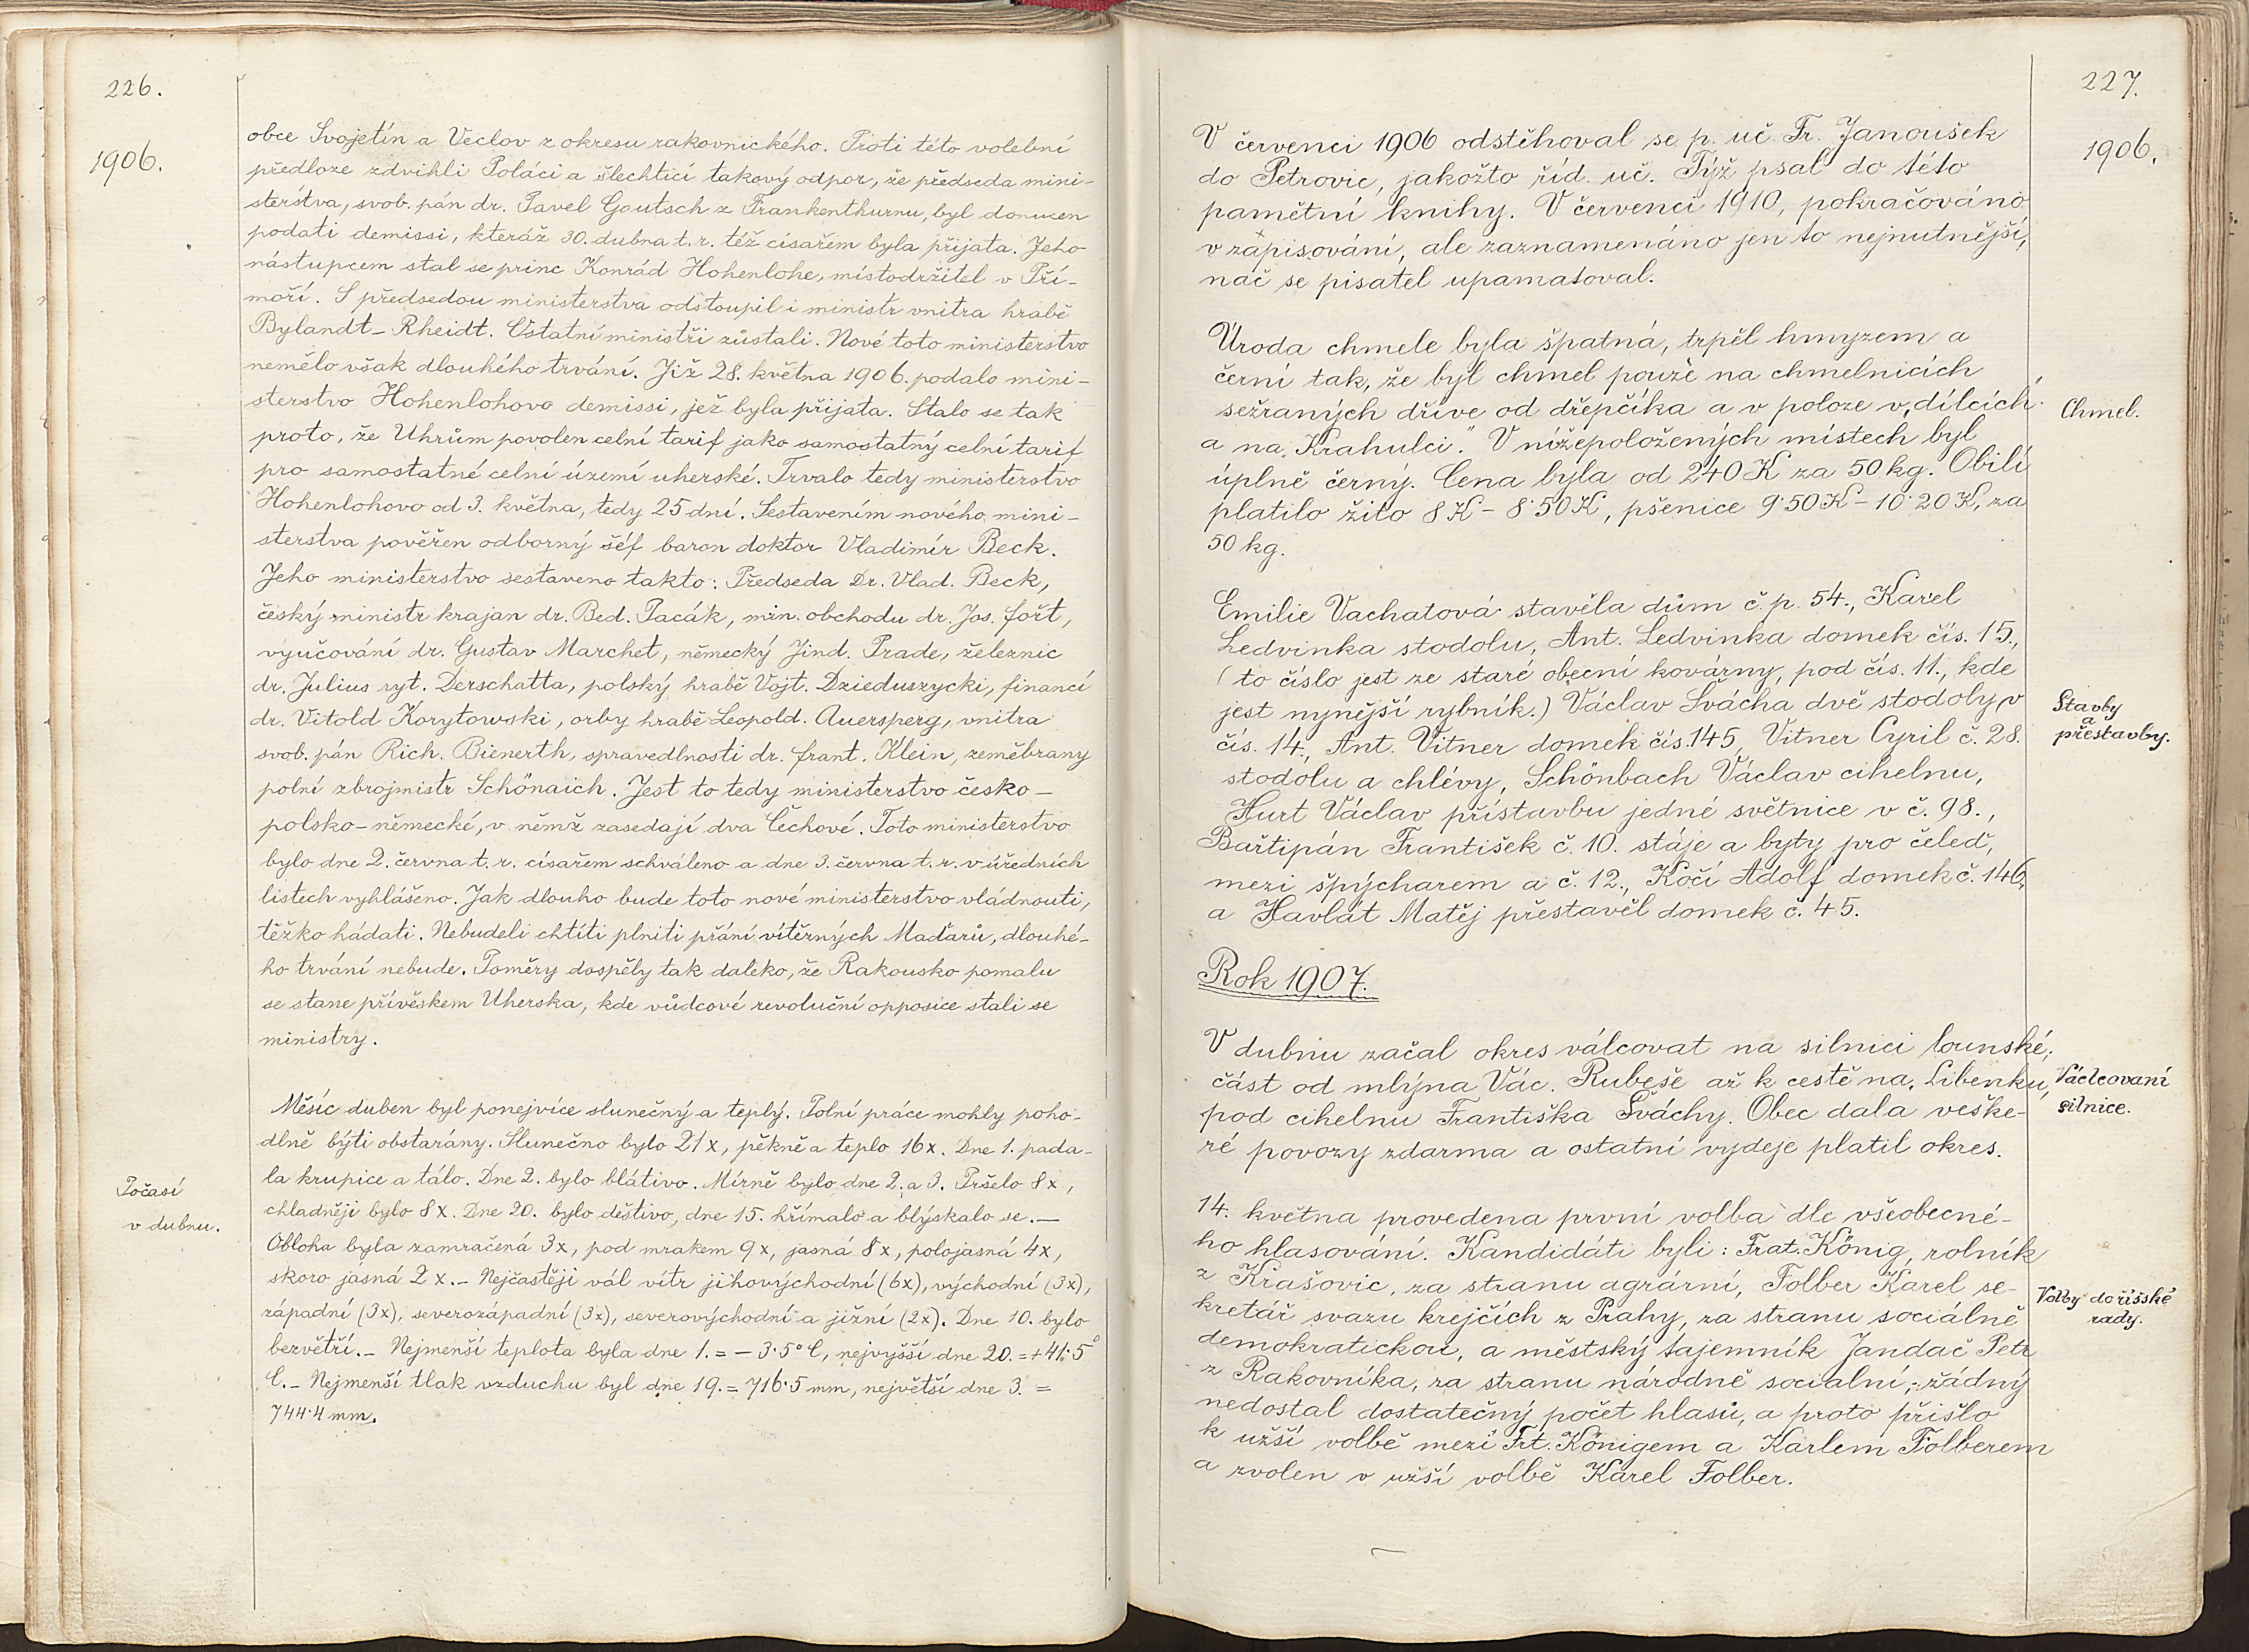 226.
1906.
obce Svojetín a Veclov z okresu rakovnického. Proti této volební
předloze zdvihli Poláci a šlechtici takový odpor, že předseda mini-
sterstva, svob. pán dr. Pavel Gautsch z Frankenthurnu, byl donucen
podati demissi, kteráž 30. dubna t. r. též císařem byla přijata. Jeho
nástupcem stal se princ Konrád Hohenlohe, místodržitel v Pří-
moří. S předsedou ministerstva odstoupil i ministr vnitra hrabě
Bylandt-Rheidt. Ostatní ministři zůstali. Nové toto ministerstvo
nemělo však dlouhého trvání. Již 28. května 1906. podalo mini-
sterstvo Hohenlohovo demissi, jež byla přijata. Stalo se tak
proto, že Uhrům povolen celní tarif jako samostatný celní tarif
pro samostatné celní území uherské. Trvalo tedy ministerstvo
Hohenlohovo od 3. května, tedy 25 dní. Sestavením nového mini-
sterstva pověřen odborný šéf baron doktor Vladimír Beck.
Jeho ministerstvo sestaveno takto: Předseda Dr. Vlad. Beck,
český ministr krajan dr. Bed. Pacák, min. obchodu dr. Jos. Fořt,
vyučování dr. Gustav Marchet, německý Jind. Prade, železnic
dr. Julius ryt. Derschatta, polský hrabě Vojt. Dzieduszycki, financí
dr. Vitold Korytowski, orby hrabě Leopold. Auersperg, vnitra
svob. pán Rich. Bienerth, spravedlnosti dr. Frant. Klein, zeměbrany
polní zbrojmistr Schönaich. Jest to tedy ministerstvo česko-
polsko-německé, v němž zasedají dva Čechové. Toto ministerstvo
bylo dne 2. června t. r. císařem schváleno a dne 3. června t. r. v úředních
listech vyhlášeno. Jak dlouho bude toto nové ministerstvo vládnouti,
těžko hádati. Nebudeli chtíti plniti přání vítězných Maďarů, dlouhé-
ho trvání nebude. Poměry dospěly tak daleko, že Rakousko pomalu
se stane přívěskem Uherska, kde vůdcové revoluční opposice stali se
ministry.
Počasí
v dubnu.
Měsíc duben byl ponejvíce slunečný a teplý. Polní práce mohly poho-
dlně býti obstarány. Slunečno bylo 21x, pěkně a teplo 16x. Dne 1. pada-
la krupice a tálo. Dne 2. bylo blátivo. Mírně bylo dne 2. a 3. Pršelo 8x,
chladněji bylo 8x. Dne 20. bylo deštivo, dne 15. hřímalo a blýskalo se. —
Obloha byla zamračená 3x, pod mrakem 9x, jasná 8x, polojasná 4x,
skoro jasná 2x. - Nejčastěji vál vítr jihovýchodní (6x), východní (3x),
západní (3x), severozápadní (3x), severovýchodní a jižní (2x). Dne 10. bylo
bezvětří. - Nejmenší teplota byla dne 1. = - 3·5° C, nejvyšší dne 20. = + 41·5°
C. - Nejmenší tlak vzduchu byl dne 19. = 716·5 mm, největší dne 3. =
744·4 mm.
227.
1906.
V červenci 1906 odstěhoval se p. uč. Fr. Janoušek
do Petrovic, jakožto říd. uč. Týž psal do této
pamětní knihy. V červenci 1910, pokračováno
v zápisování, ale zaznamenáno jen to nejnutnější,
nač se pisatel upamatoval.
Úroda chmele byla špatná, trpěl hmyzem a
černí tak, že byl chmel pouze na chmelnicích
sežraných dříve od dřepčíka a v poloze v „dílcích"
a na „Krahulci." V nížepoložených místech byl
úplně černý. Cena byla od 240 K za 50 kg. Obilí
platilo žito 8 K - 8·50 K, pšenice 9·50 K - 10·20 K, za
50 kg.
Chmel.
Emilie Vachatová stavěla dům č. p. 54., Karel
Ledvinka stodolu, Ant. Ledvinka domek čís. 15.,
(to číslo jest ze staré obecní kovárny, pod čís. 11., kde
jest nynější rybník.) Václav Švácha dvě stodoly v
čís. 14., Ant. Vitner domek čís. 145, Vitner Cyril č. 28.
stodolu a chlévy, Schönbach Václav cihelnu,
Hurt Václav přístavbu jedné světnice v č. 98.,
Bařtipán František č. 10. stáje a byty pro čeleď,
mezi špýcharem a č. 12., Kočí Adolf domek č. 146,
a Havlát Matěj přestavěl domek č. 45.
Stavby
a
přestavby.
Rok 1907.
V dubnu začal okres válcovat na silnici lounské,
část od mlýna Vác. Rubeše až k cestě na „Libenku,
pod cihelnu Františka Šváchy. Obec dala veške-
ré povozy zdarma a ostatní vydeje platil okres.
Václcovaní
silnice.
14. května provedena první volba dle všeobecné-
ho hlasování. Kandidáti byli: Frat. König, rolník
z Krašovic, za stranu agrární, Folber Karel se-
kretář svazu krejčích z Prahy, za stranu sociálně
demokratickou, a městský tajemník Jandač Petr
z Rakovníka, za stranu národně socialní; žádný
nedostal dostatečný počet hlasů, a proto přišlo
k užší volbě mezi Frt. Königem a Karlem Folberem
a zvolen v užší volbě Karel Folber.
Volby do říšské
rady.